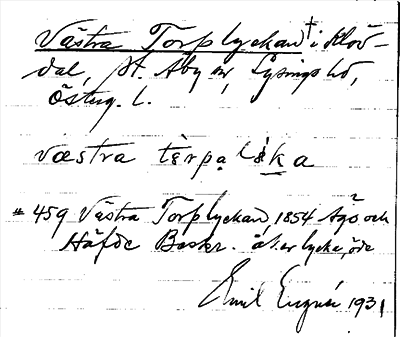 Västra Torplyckan † i Klöv-
dal, St. Åby sn, Lysings hd,
Östug. l.
væstra tèrpaḷỳka
# 459 Västra Torplyckan, 1854 Ägo och
Häfde Beskr. åker lycka, öde
Emil 1931